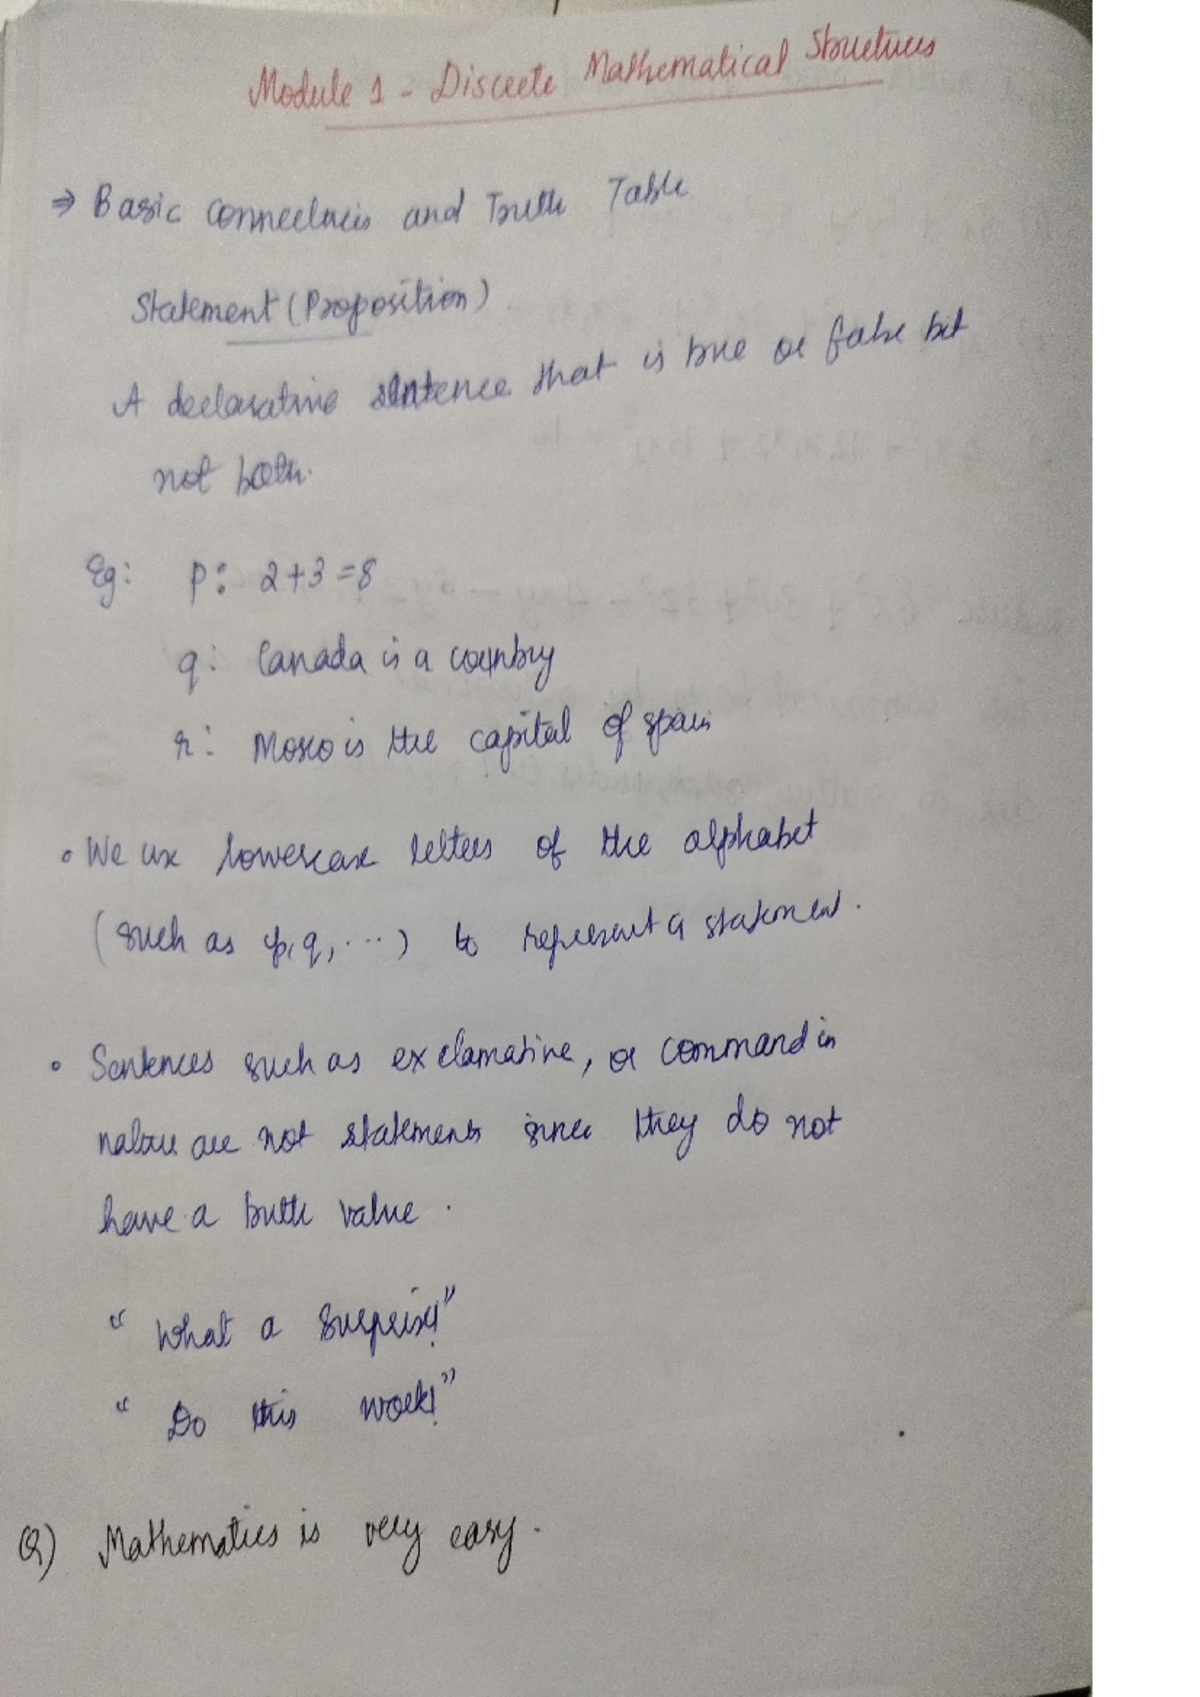 Module 1 - Discrete Mathematical Structures
⇒ Basic connectives and Truth Table
Statement (Proposition)
A declarative sentence that is true or false but
not both.
Eg: p: 2+3=8
q: Canada is a country
r: Mosco is the capital of spain
• We use lowercase letters of the alphabet
(such as p, q, ...) to represent a statement.
• Sentences such as exclamative, or command in
nature are not statements since they do not
have a truth value.
"What a surprise!"
"Do this work!"
Q) Mathematics is very easy.